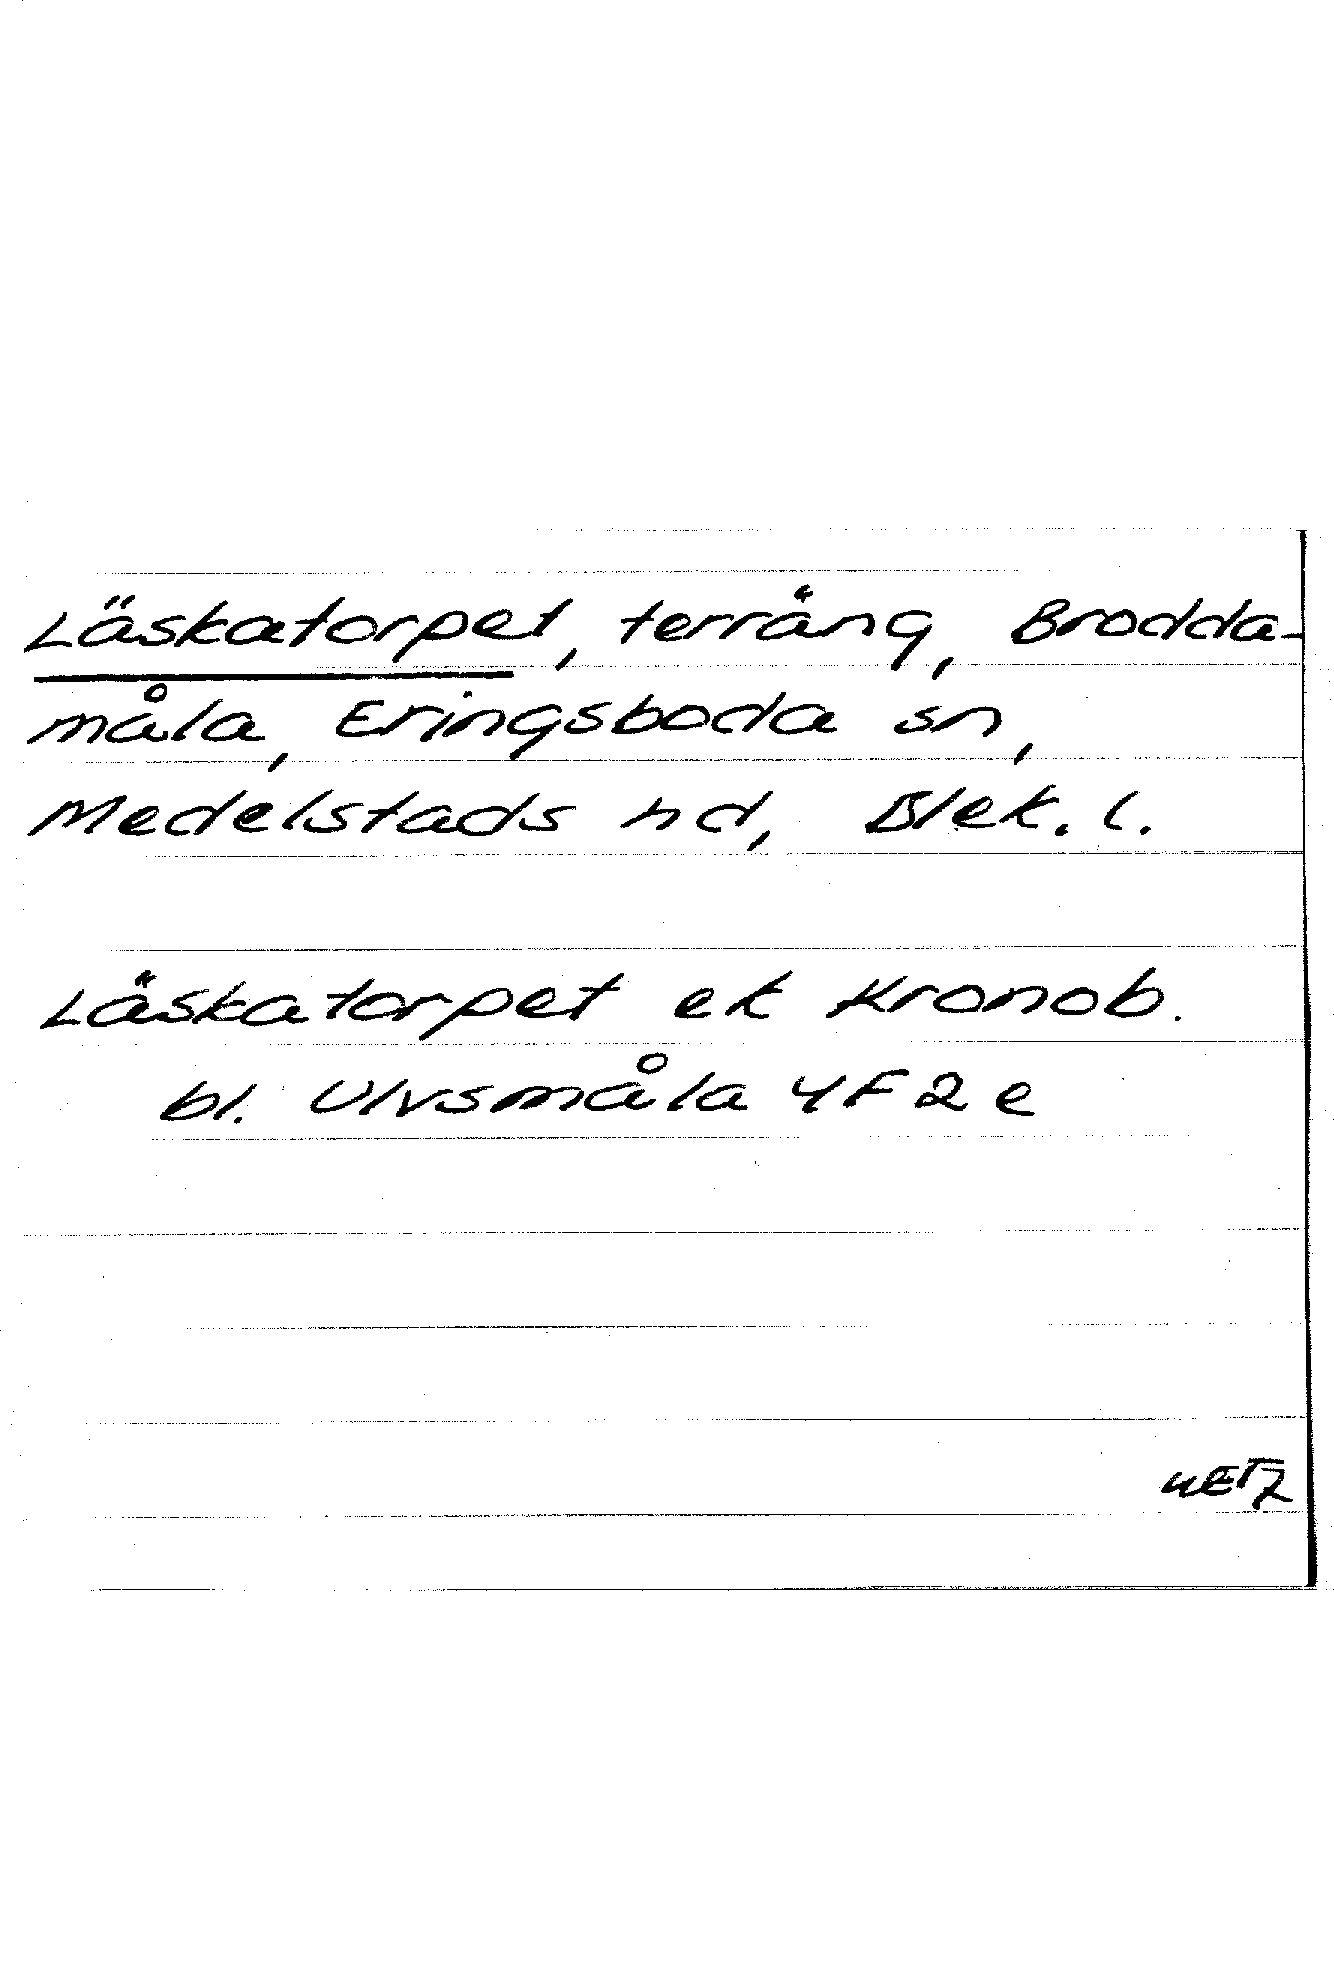 Läskatorpet, terräng, Brodda-
måla, Eringsboda sn,
Medelstads hd, Blek. l.
Läskatorpet ek Kronob.
bl. Ulvsmåla 4F2e